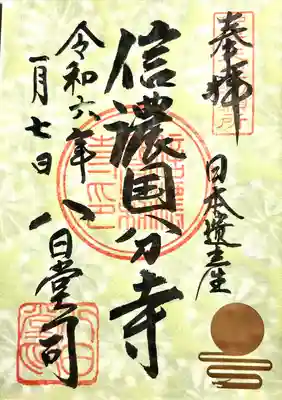 奉拝
日本遺産
信濃国分寺
八日堂司
令和六年
一月七日